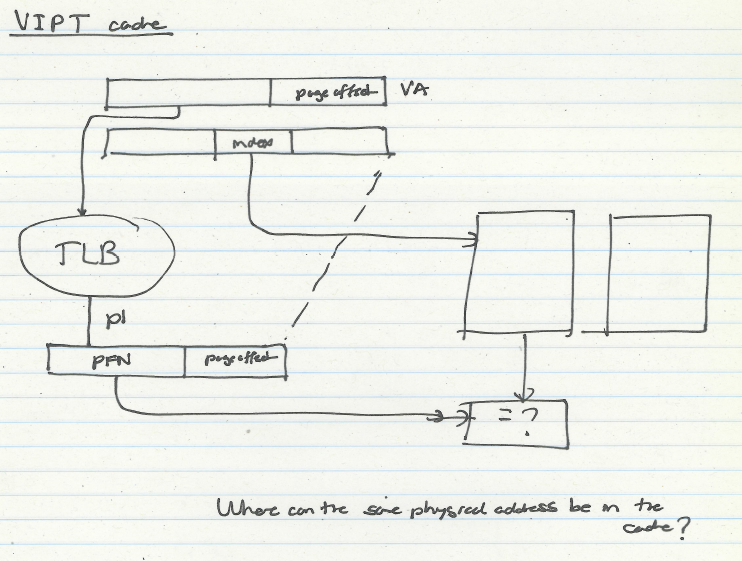 VIPT cache
page offset VA
index
TLB
PFN page offset
= ?
Where can the same physical address be in the
cache?